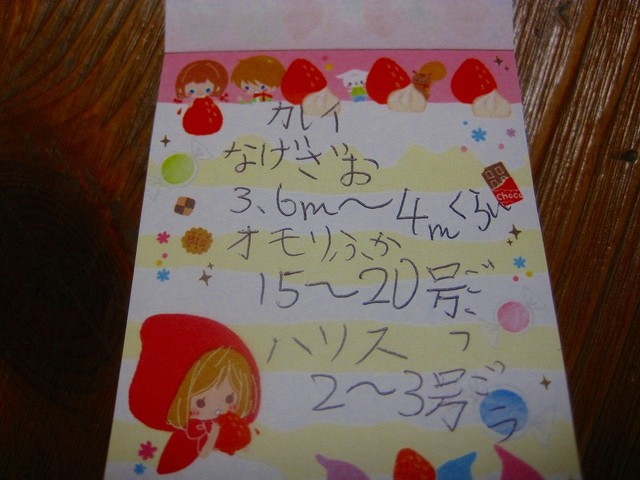 カレイ
なげざお
3.6m〜4mくらい
choco
オモリふか
15〜20号
ハリス
2〜3号